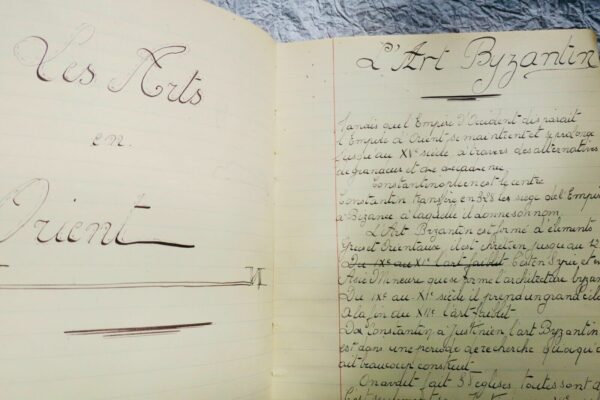 Les Arts
en
Orient
L'Art Byzantin
Tandis que l'Empire d'Occident disparait
l'Empire d'Orient se maintient et se prolonge
jusqu'au XVe siècle, à travers des alternatives
de grandeur et de décadence.
Constantinople en est le centre
Constantin transfère en 328 le siège de l'Empi
à Byzance à laquelle il donne son nom.
L'Art Byzantin est formé d'éléments
Grecs et Orientaux, il est chrétien, jusque au 12
Du IXe au XIe l'art faiblit C'est en Syrie et en
Asie Mineure que se forme l'architecture byzan
Du IXe au XIe siècle il prend un grand éclat
A la fin du XIIe l'art faiblit
De Constantin à Justinien, l'art Byzantin
est dans une période de recherche quoiqu'on
ait beaucoup construit
On avait fait églises, toutes sont d